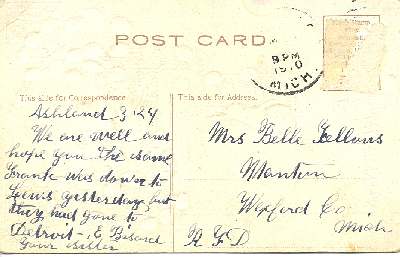 POST CARD
8 PM
1910
MICH.
This side for Correspondence.
This side for Address.
Ashland 3 24
We are well and
hope you the same
Frank was down to
Lewis yesterday but
they had gone to
Detroit - E Bisard
Your sister
Mrs Belle Fellows
Manton
Wexford Co
Mich
R F D